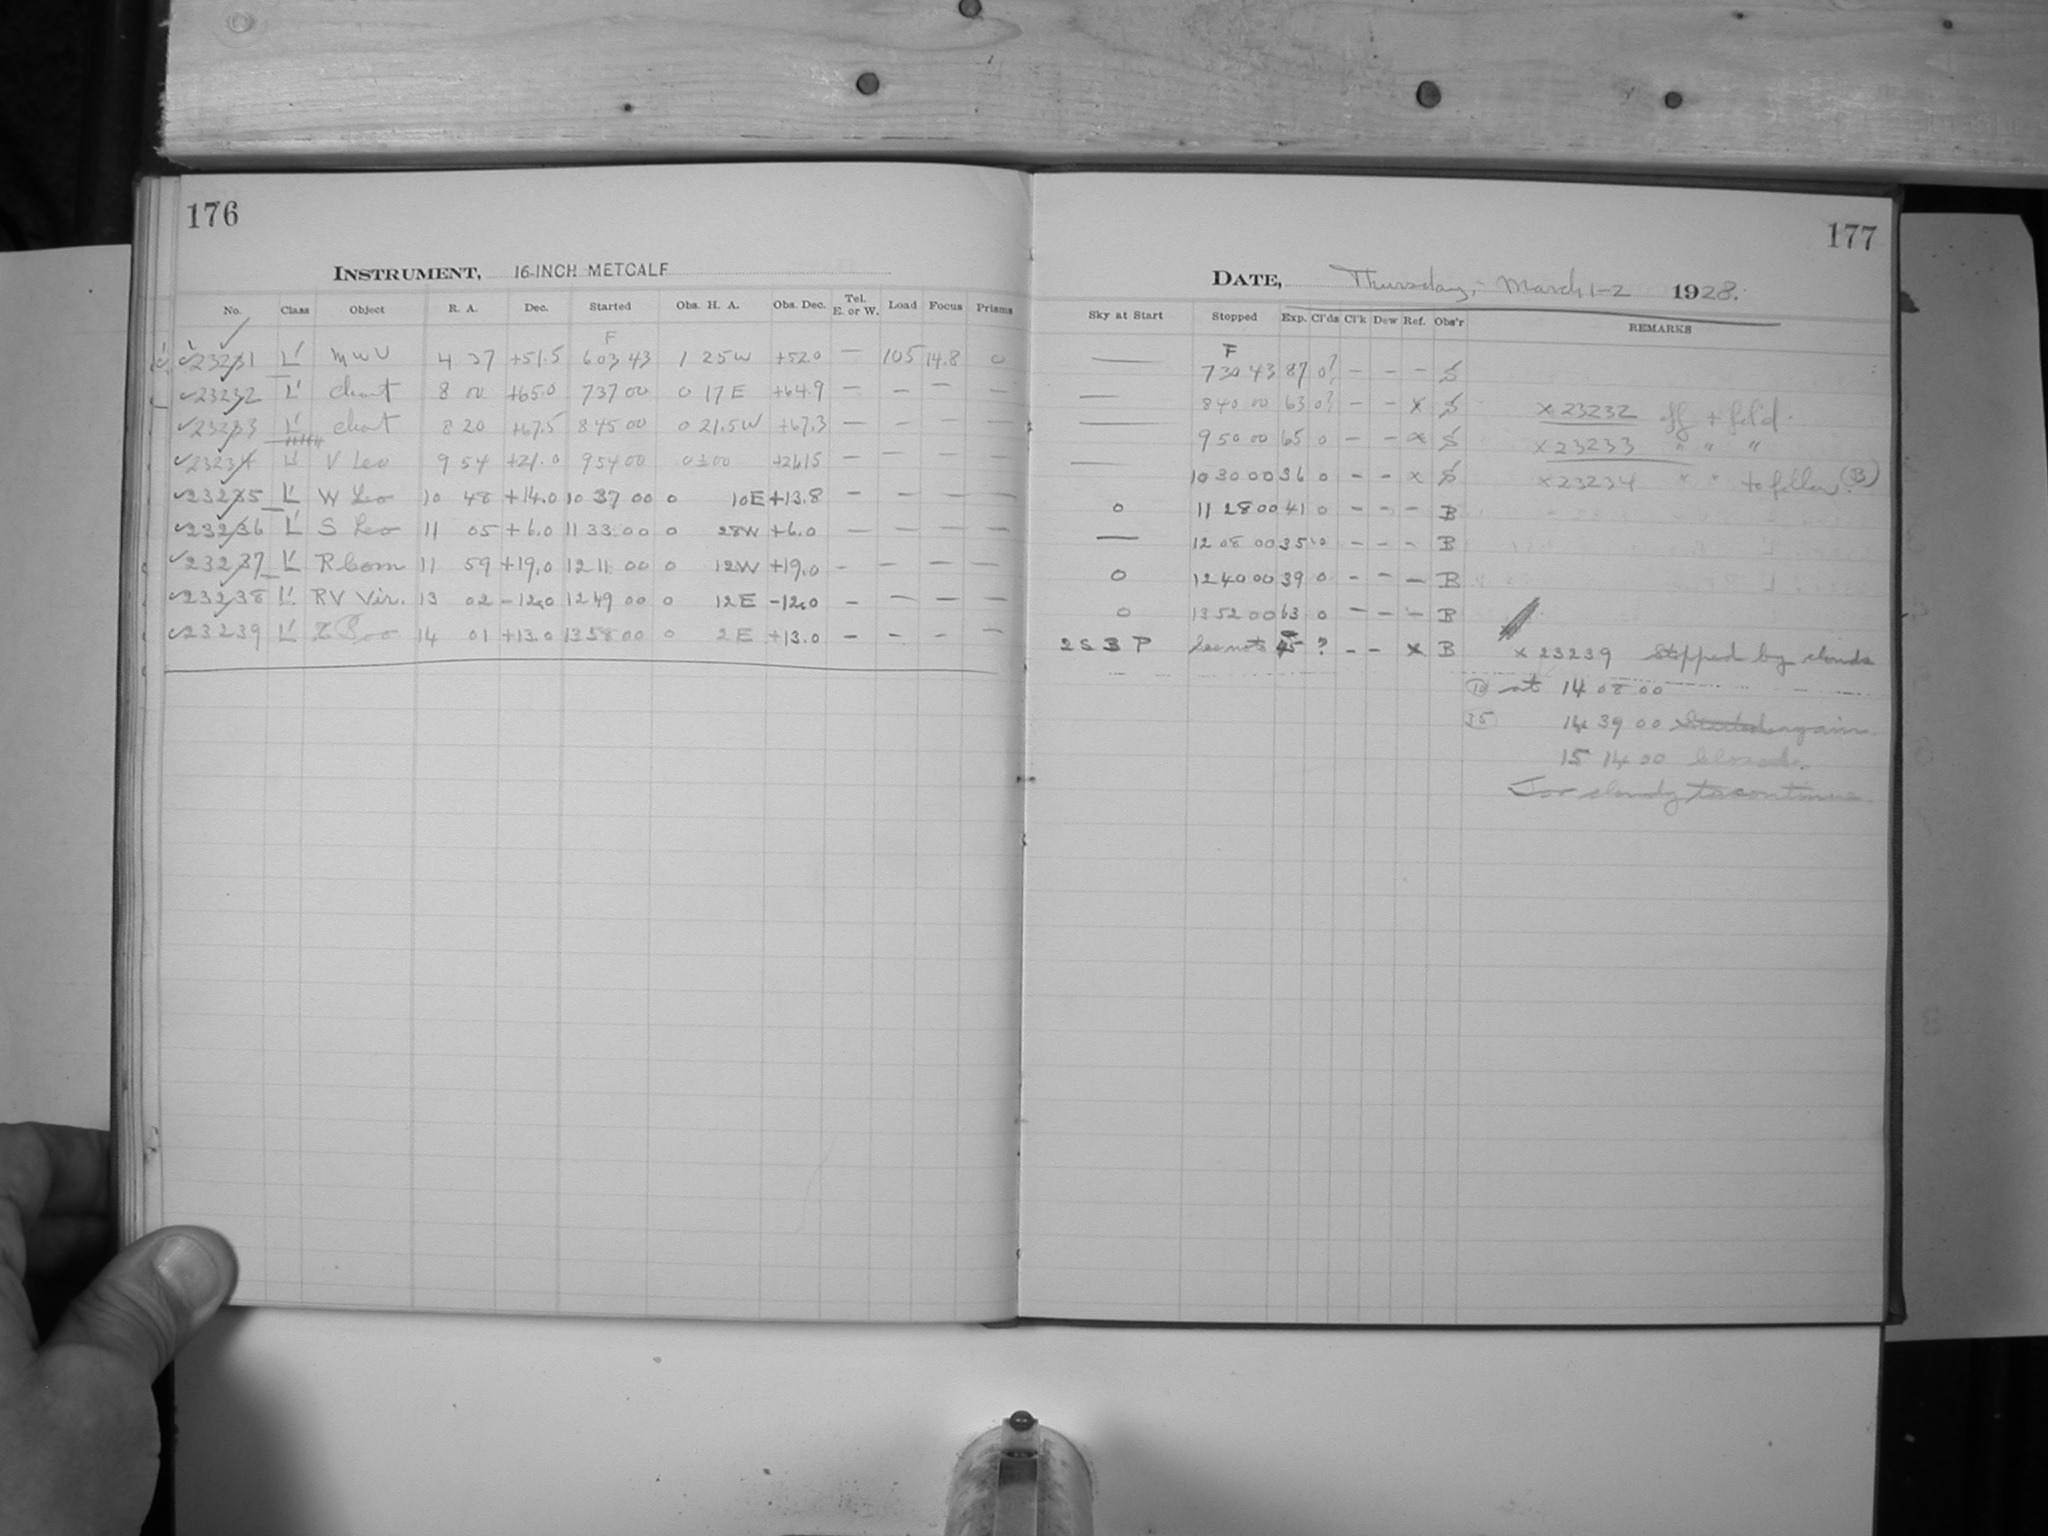 176
INSTRUMENT, 16-INCH METCALF
No. Class Object R. A. Dec. Started Obs. H. A. Obs. Dec. Tel. E. or W. Load Focus Prisms
F
23231 L' MWU 4 37 +51.5 6 03 43 1 25 W +52.0 — 105 14.8 0
23232 L' chart 8 00 +65.0 7 37 00 0 17 E +64.9 — — — —
23233 L' chart 8 20 +67.5 8 45 00 0 21.5 W +67.3 — — — —
23234 L' V Leo 9 54 +21.0 9 54 00 0 ±00 — — — —
23235 L' W Leo 10 48 +14.0 10 37 00 0 10 E +13.8 — — — —
23236 L' S Leo 11 05 +6.0 11 33 00 0 28 W +6.0 — — — —
23237 L' R Com 11 59 +19.0 12 11 00 0 12 W +19.0 — — — —
23238 L' RV Vir. 13 02 -12.0 12 49 00 0 12 E -12.0 — — — —
23239 L' Z Boo 14 01 +13.0 13 58 00 0 2 E +13.0 — — — —
177
DATE, Thursday, - March 1-2 1928.
Sky at Start Stopped Exp. Cl'ds Cl'k Dew Ref. Obs'r REMARKS
F
— 7 30 43 87 0? — — — S
— 8 40 00 63 0? — — x S x 23232 off + fol'd.
— 9 50 00 65 0 — — x S x 23233 " " "
— 10 30 00 36 0 — — x S x 23234 " " to follow. (B)
0 11 28 00 41 0 — — — B
— 12 08 00 35 0 — — — B
0 12 40 00 39 0 — — — B
0 13 52 00 63 0 — — — B
2 S 3 P See note 45 ? — — x B x 23239 Stopped by clouds
10 at 14 08 00
35 14 39 00 Started again.
15 14 00 Closed.
Too cloudy to continue.